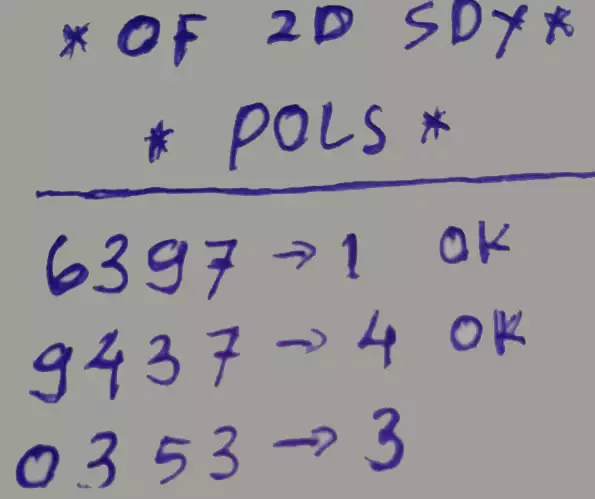 * OF 2D SDY *
* POLS *
6397 → 1 OK
9437 → 4 OK
0353 → 3